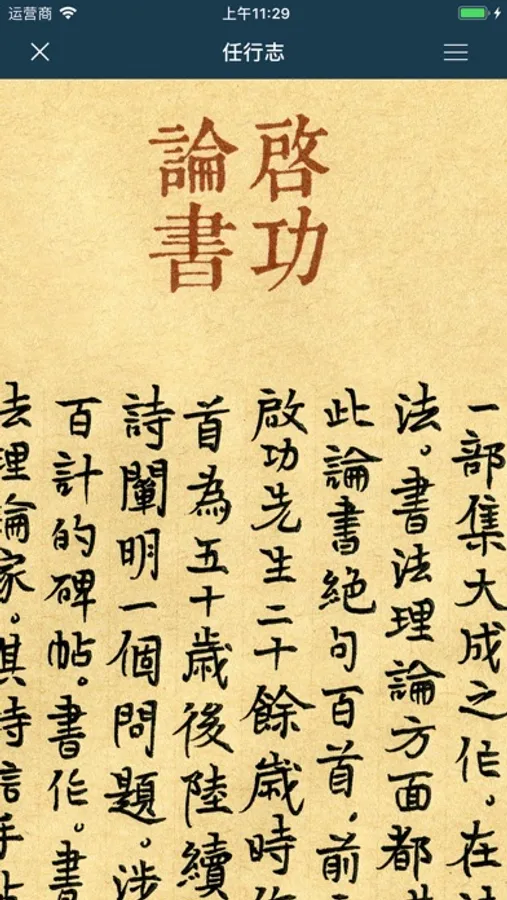 运营商
上午11:29
任行志
啓功
論書
一部集大成之作。在
法。書法理論方面都
此論書絶句百首，前
啟功先生二十餘歲時
首為五十歲後陸續
詩闡明一個問題。涉
百計的碑帖。書作。書
理論家。其詩言